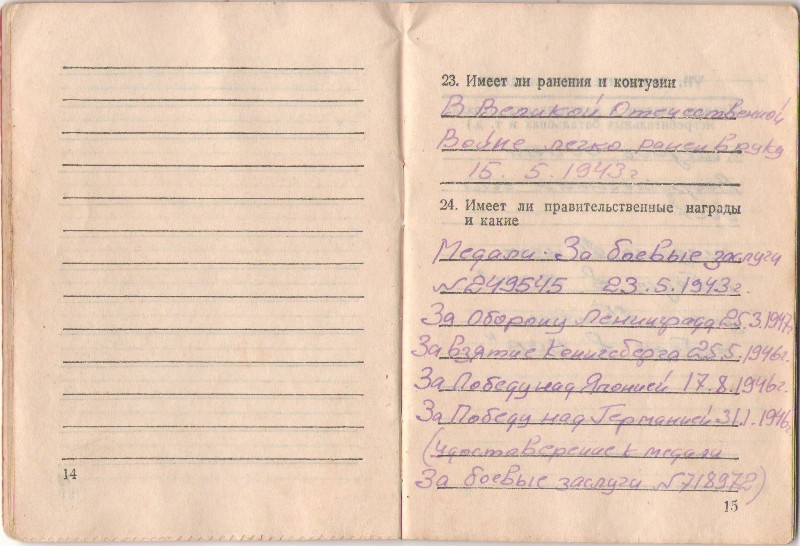 23. Имеет ли ранения и контузии
В Великой Отечественной
Войне легко ранен в руку
15. 5. 1943г
24. Имеет ли правительственные награды
и какие
Медали: За боевые заслуги
№249545 23.5.1943г.
За Оборону Ленинграда 25.3.1947г
За взятие Кенигсберга 25.5.1946г
За Победу над Японией 17.8.1946г.
За Победу над Германией 31.1.1946г
(удостоверение к медали
За боевые заслуги №718972)
14
15